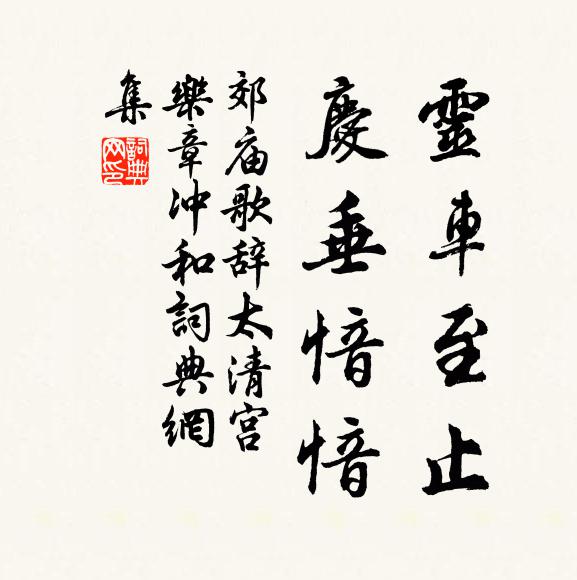 靈車至止
慶垂愔愔
郊庙歌辞太清宮
樂章沖和詞典網
集
詞典
网印